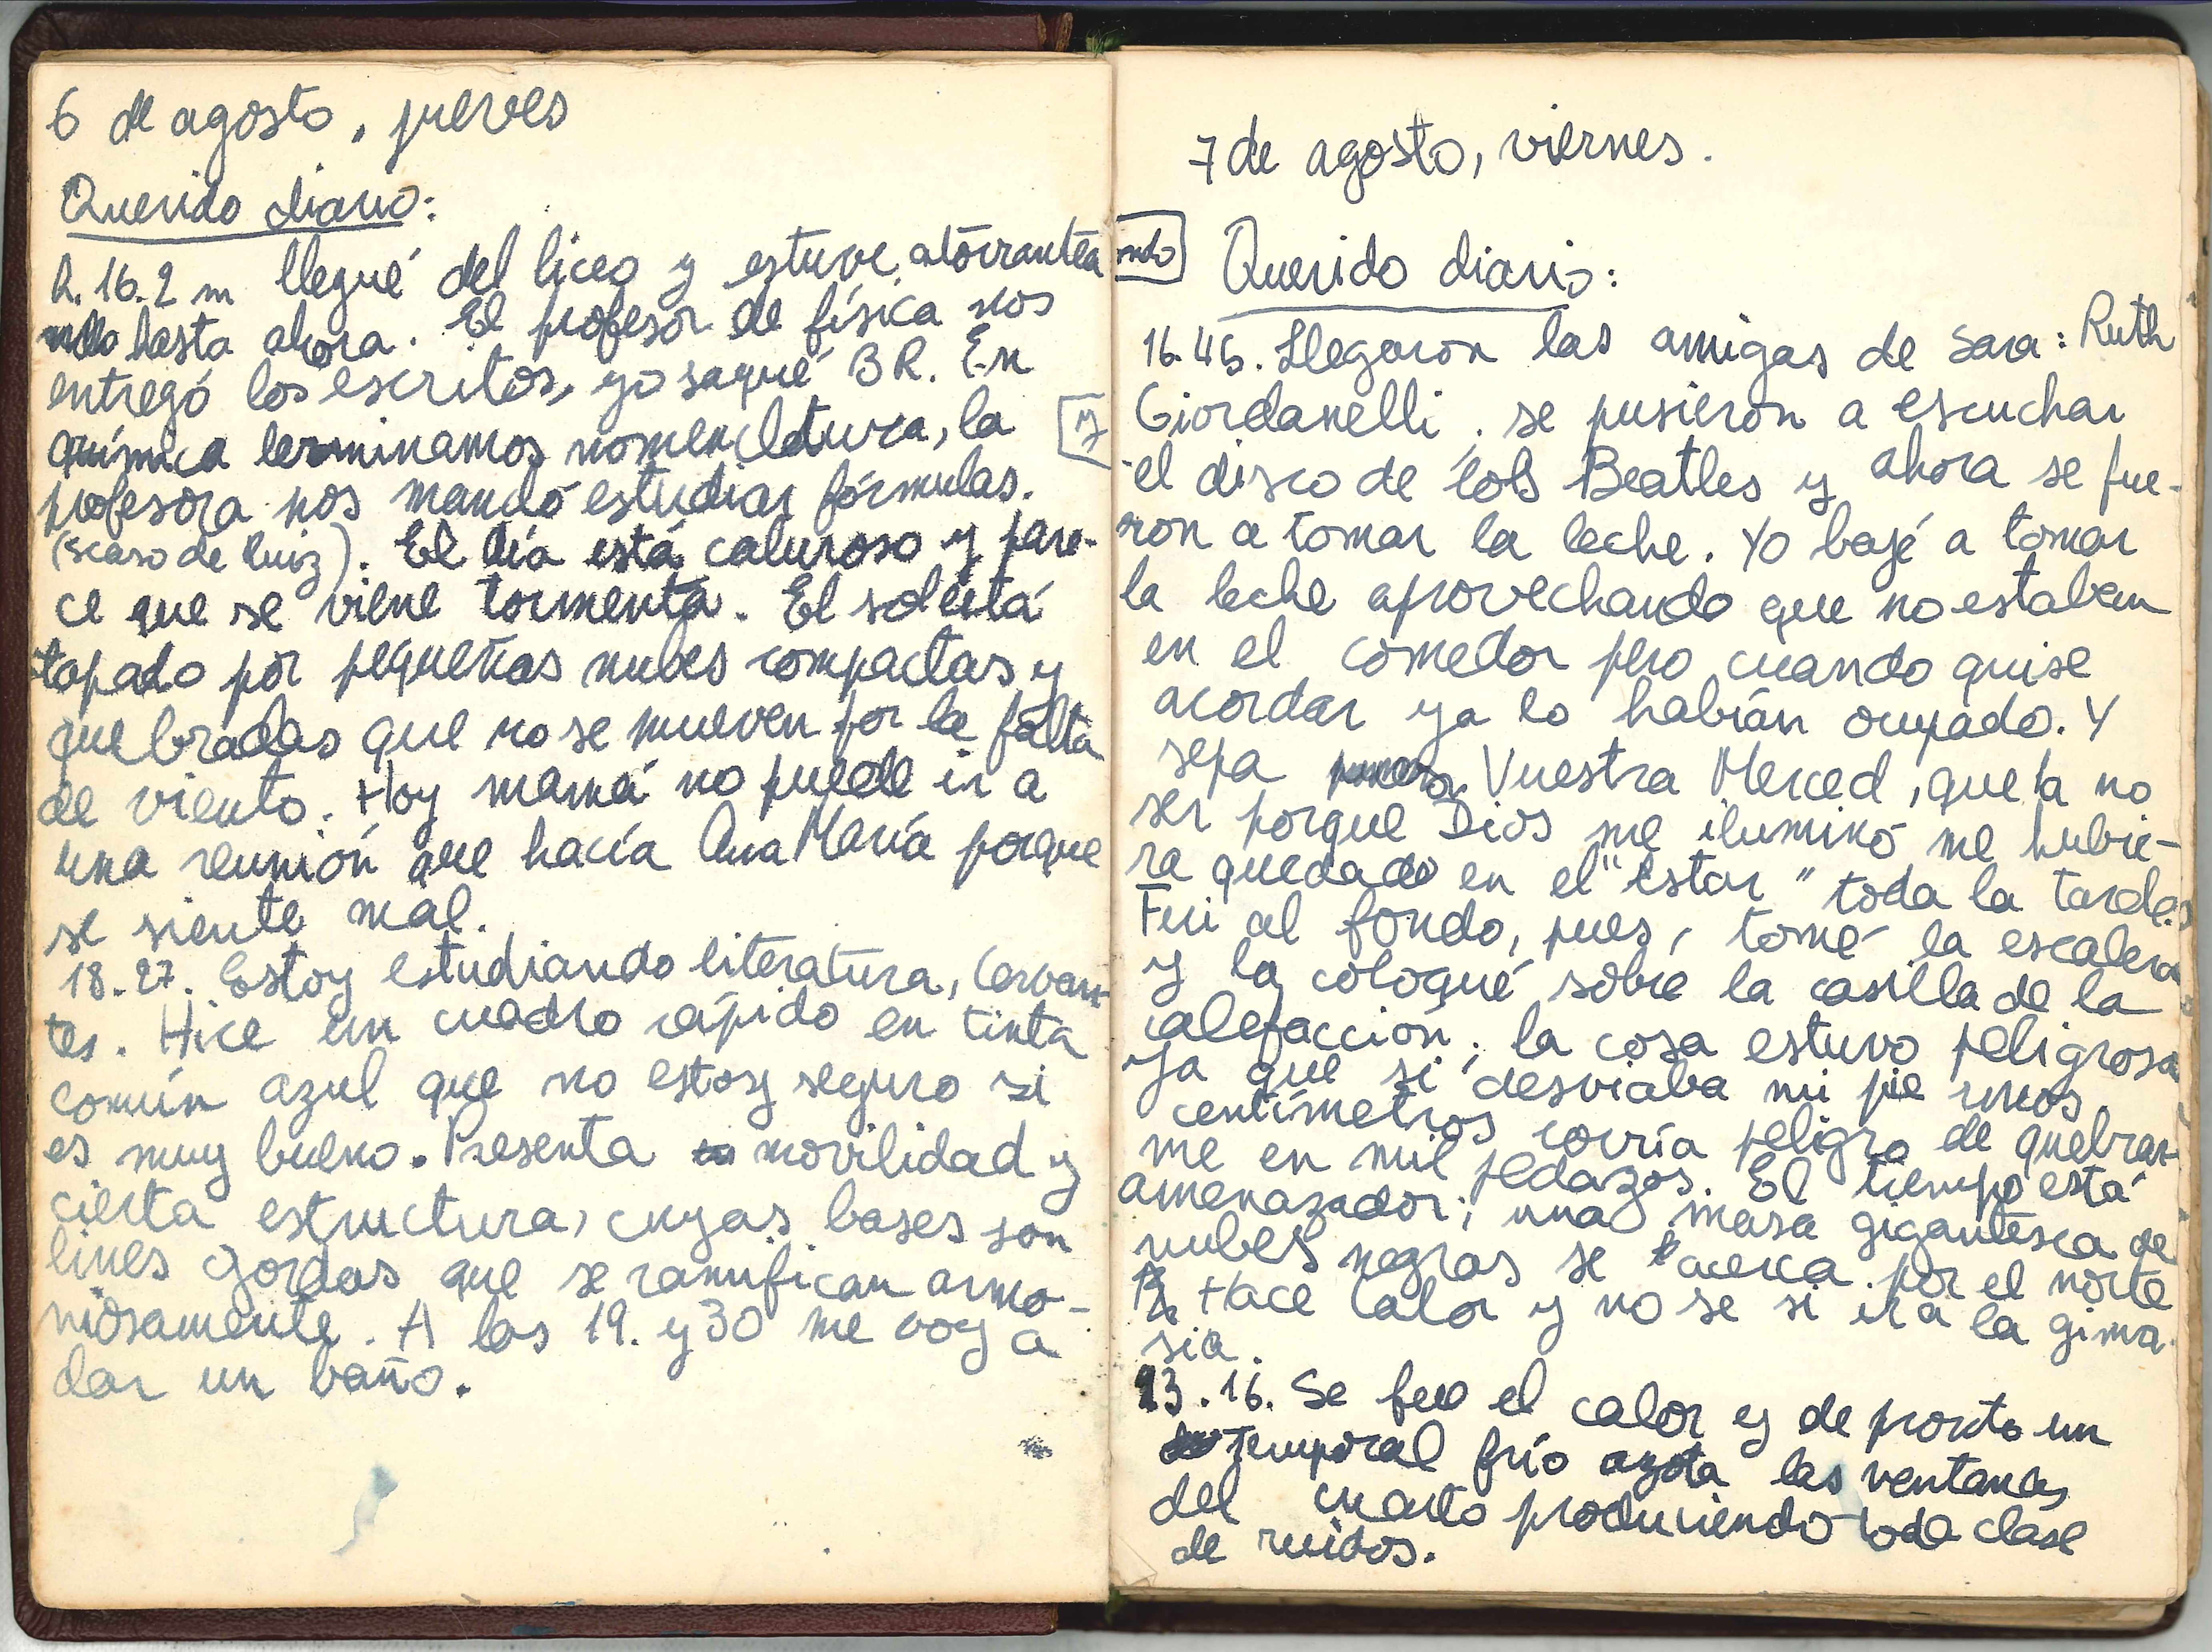 6 de agosto, jueves
Querido diario:
h. 16.2 m llegué del liceo y estuve atorrantea
ndo hasta ahora. El profesor de física nos
entregó los escritos, yo saqué BR. En
química terminamos nomencldtura, la
profesora nos mandó estudiar fórmulas.
(scaso de Ruiz). El día está caluroso y pare-
ce que se viene tormenta. El sol está
tapado por pequeñas nubes compactas y
quebradas que no se mueven por la falta
de viento. Hoy mamá no puede ir a
una reunión que hacía Ana María porque
se siente mal.
18.27. Estoy estudiando literatura, Cervan-
tes. Hice un cuadro rápido en tinta
común azul que no estoy seguro si
es muy bueno. Presenta movilidad y
cierta estructura, cuyas bases son
lines gordas que se ramifican armo-
niosamente. A las 19. y 30 me voy a
dar un baño.
7 de agosto, viernes.
ndo
Querido diario:
16.45. Llegaron las amigas de Sara: Ruth
y
Giordanelli, se pusieron a escuchar
el disco de lols Beatles y ahora se fue-
ron a tomar la leche. Yo bajé a tomar
la leche aprovechando que no estaban
en el comedor pero cuando quise
acordar ya lo habían ocupado. Y
sepa Vuestra Merced, que a no
ser porque Dios me iluminó me hubie-
ra quedado en el "estar" toda la tarde.
Fui al fondo, pues, tomé la escalera
y la coloqué sobre la casilla de la
calefacción; la cosa estuvo peligrosa
ya que si desviaba mi pie unos
centímetros corría peligro de quebrar-
me en mil pedazos. El tiempo está
amenazador; una masa gigantesca de
nubes negras se acerca por el norte
Hace calor y no se si ir a la gimna-
sia.
23.16. Se fue el calor y de pronto un
temporal frío azota las ventanas
del cuarto produciendo toda clase
de ruidos.